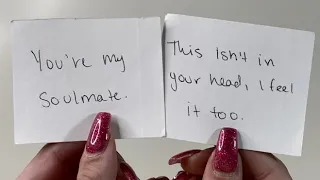 You're my
Soulmate.
This Isn't in
your head, I feel
it too.